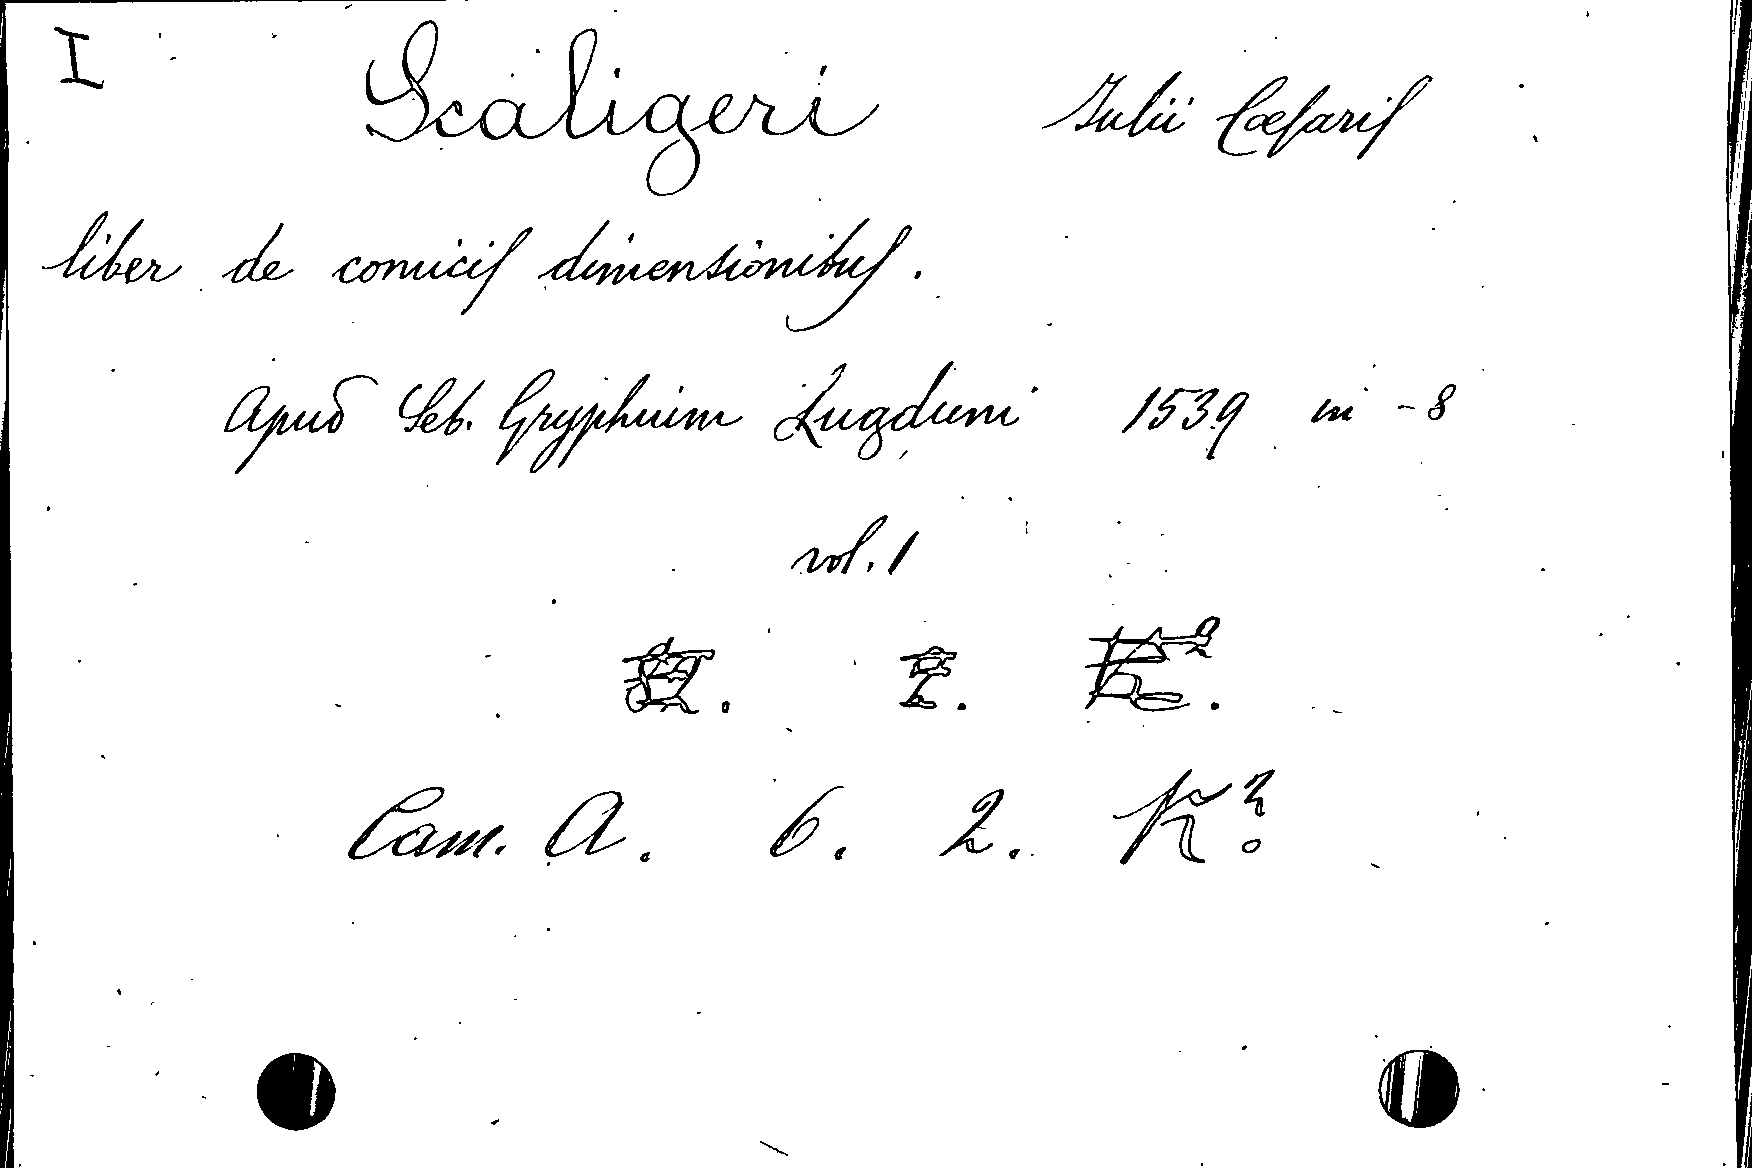 I
Scaligeri Iulii Cæsaris
liber de comicis dimensionibus.
Apud Seb. Gryphium Lugduni 1539 in-8
vol. 1
Cam. A. 6. 2.